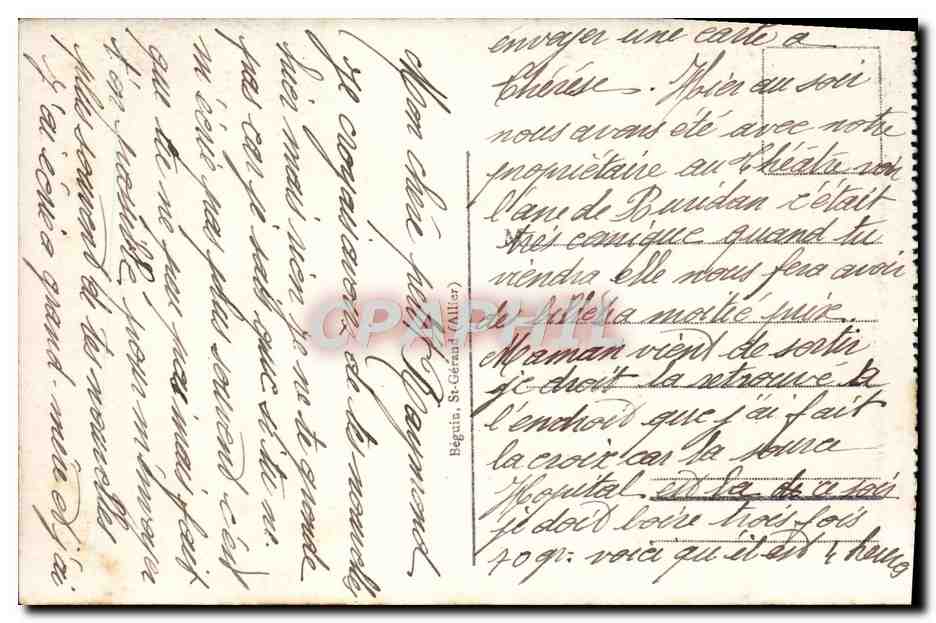 Mon cher petit Raymond
Je croyais avoir de te nouvelle
hier mais rien je ne te gronde
pas car je sais que si tu ni
m'écrit pas plus souvent c'est
que tu ne peu pas mai fait
ton possible pour m'envoyer
plus souvent de te nouvelle
J'ai écris grand-mère et j'ai
envoyer une carte a
Thérése. Hier au soir
nous avons été avec notre
propriétaire au théâtre voir
l'ane de Buridan c'était
très comique quand tu
viendra elle nous fera avoir
de billets a moitié prix.
Maman vient de sortir
je droit la retrouvé a
l'endroit que j'ai fait
la croix car la source
Hopital est la de ce soir
je doit boire trois fois
70 gr. voici qu'il est 4 heures
Béguin, St-Gérand (Allier)
CPAPHIL